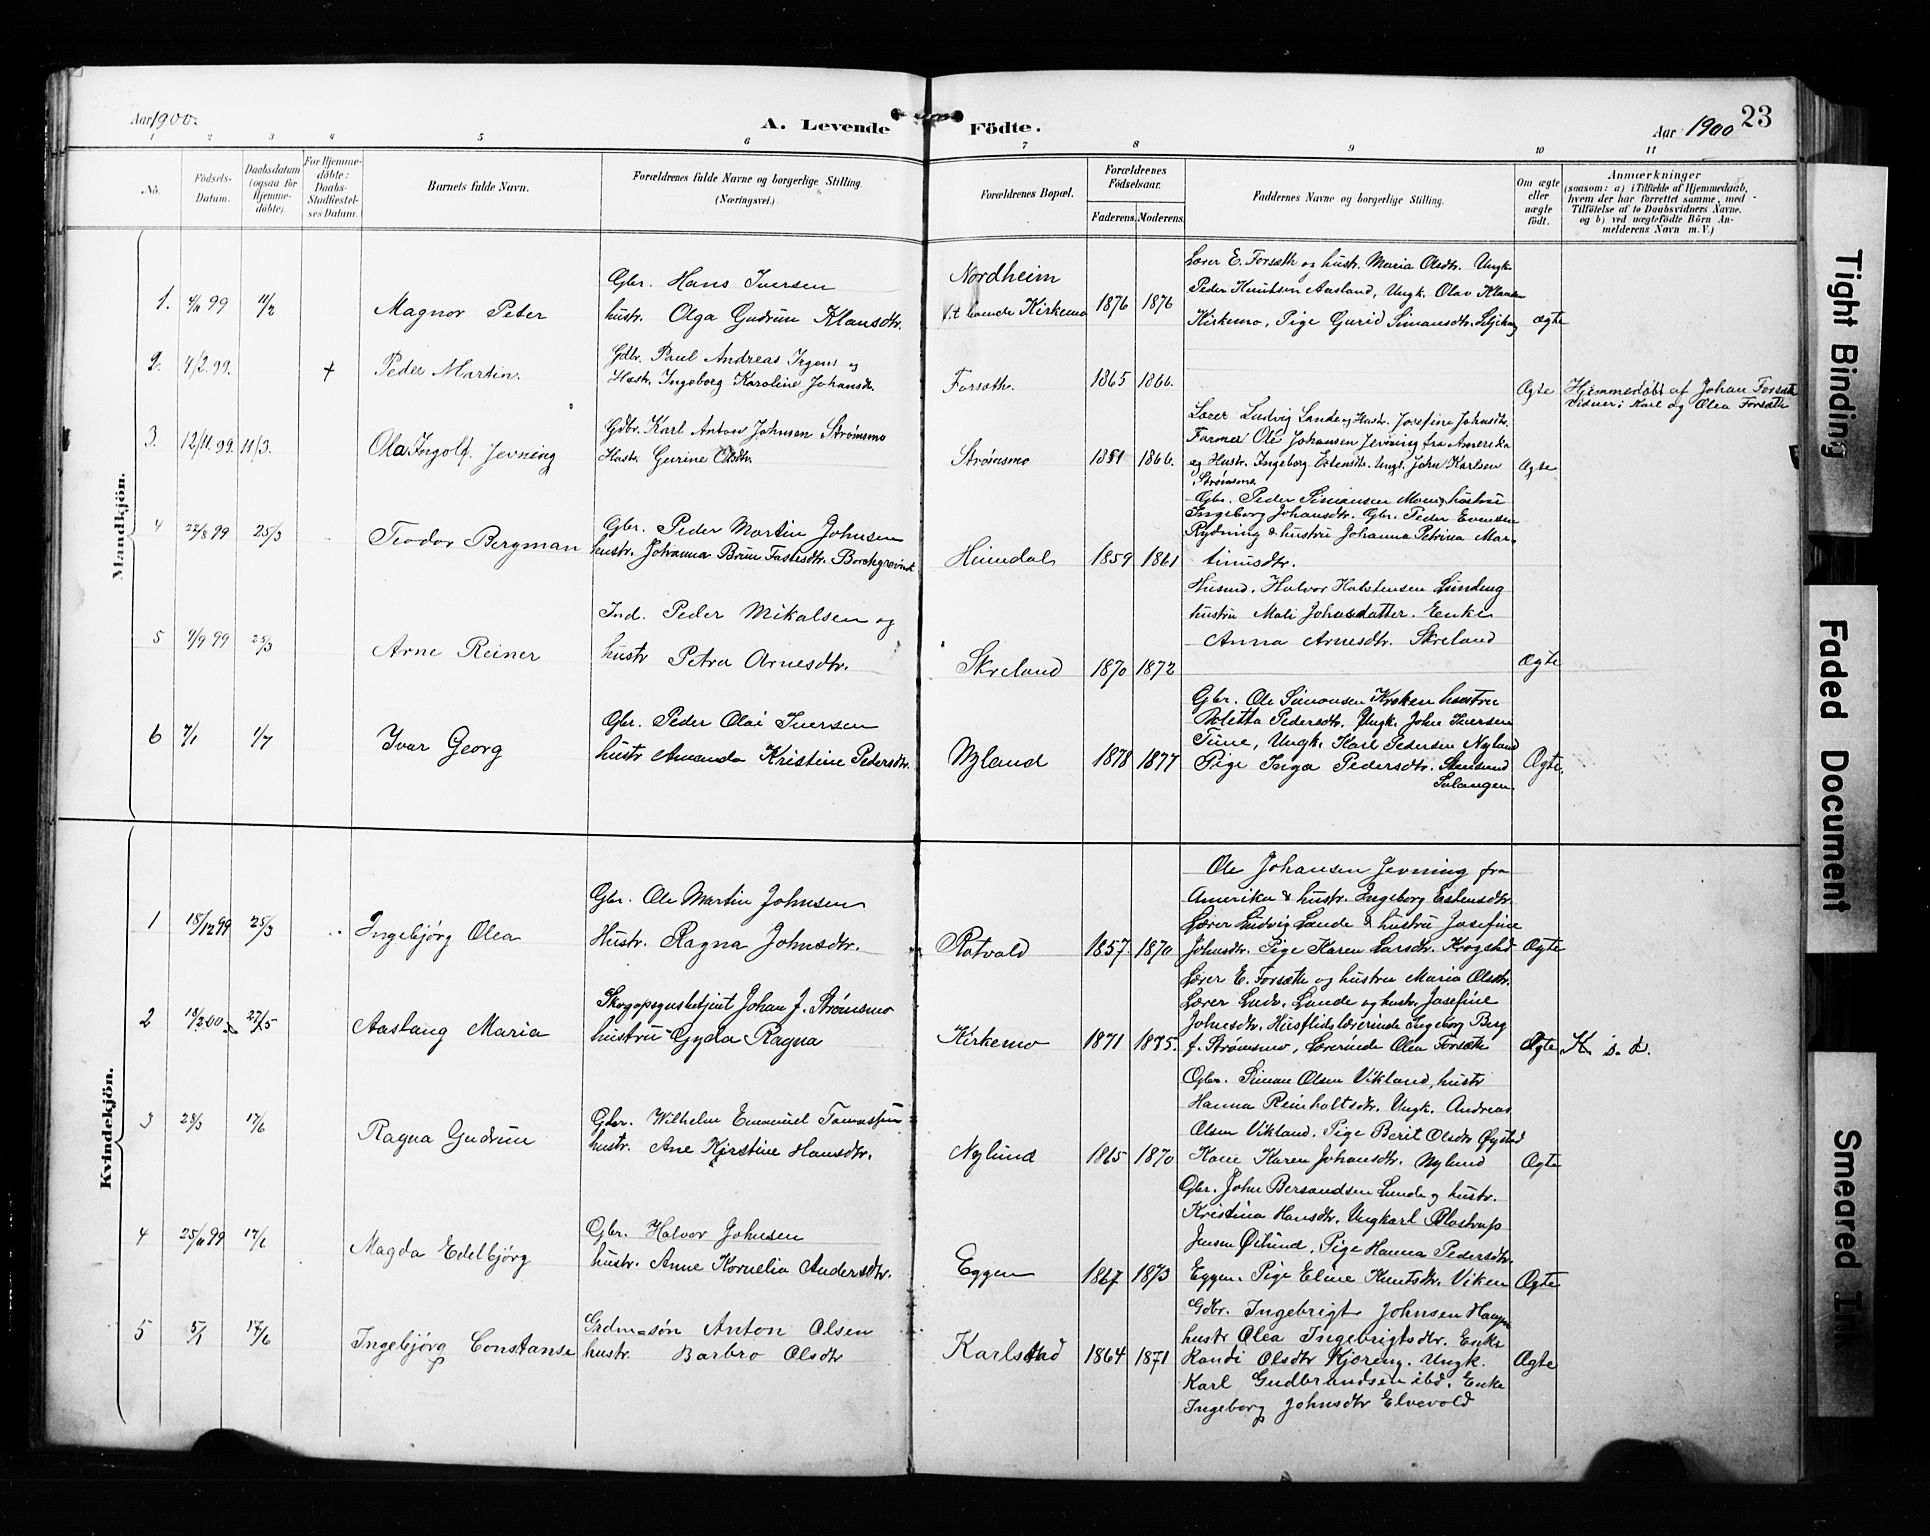 Aar 1900.
A. Levende Födte.
Aar 1900
23
1 2 3 4 5 6 7 8 9 10 11
No.
Födsels-
Datum.
Daabsdatum
(ogsaa for
Hjemme-
döbte).
For Hjemme-
döbte:
Daabs-
Stadfæstel-
ses Datum.
Barnets fulde Navn.
Forældrenes fulde Navne og borgerlige Stilling.
(Næringsvei.)
Forældrenes Bopæl.
Forældrenes
Födselsaar.
Faderens.
Moderens.
Faddernes Navne og borgerlige Stilling.
Om ægte
eller
uægte
født.
Anmærkninger
(saasom: a) i Tilfælde af Hjemmedaab,
hvem der har forrettet samme, med
Tilföielse af to Daabsvidners Navne.
og b) ved uægtefödte Börn An-
melderens Navn m. V.)
Mandkjön.
1. 99 11/2
Magnor Peter
Gbr. Hans Iversen
hustr. Olga Gudrun Klausdtr.
Nordheim
Kirkemo
1876 1876
Lærer E. Forsæth og hustr. Maria Olsdtr. Ungk.
Peder Knutsen Aasland, Ungk. Olav Klausen
Kirkemo, Pige Gurid Simonsdtr.
ægte
2. 4/2 99. +
Peder Martin.
Gdbr. Paul Andreas Irgens og
Hustr. Ingeborg Karoline Johansdtr.
Forsæth.
1865 1866.
Ægte
Hjemmedøbt af Johan Forsæth
Vidner: Karl og Olea Forsæth
3. 12/11 99. 11/3.
Ola Ingolf. Jevning
Gdbr. Karl Anton Johnsen Strømsmo
Hustr. Gurine Olsdtr.
Strømsmo
1861 1866.
Lærer Ludvig Lande og Hustr. Josefine Johnsdtr.
Farmer Ole Johansen Jevning fra Amerika
og Hustr. Ingeborg Estensdtr. Ungk. John Karlsen
Strømsmo
Ægte
4 22/8 99 25/3
Teodor Bergman
Gbr. Peder Martin Johnsen
hustr. Johanna Brun Fastesdtr. Borchgrevink
Heimdal
1859 1861
Gbr. Peder Simonsen Moen, hustru
Ingeborg Johansdtr. Gbr. Peder Evensen
Rydning & hustru Johanna Petrina Mar-
tinusdtr.
5 9/9 99 25/3
Arne Reiner
Ind. Peder Mikalsen og
hustr Petra Arnesdtr.
Skreland
1870 1872
Husmd. Halvor Halstensen Lundeng
hustru Mali Johnsdatter. Enke
Anna Arnesdtr. Skreland
Ægte
6 7/1 1/7
Ivar Georg
Gbr. Peder Olai Iversen
hustr Amanda Kristine Pedersdtr.
Nyland
1878 1877
Gbr. Ole Simonsen Kroken hustru
Bolette Pedersdtr. Ungk. John Iversen
Tune, Ungk. Karl Pedersen Nyland
Pige Inga Pedersdtr. Stensund
Salangen
Ægte.
Kvindekjön.
1 18/12 99 25/3
Ingebjörg Olea
Gbr. Ole Martin Johnsen
Hustr. Ragna Johnsdtr.
Rotvold
1857. 1870
Ole Johansen Jevning fra
Amerika & hustr. Ingeborg Estensdtr.
Lærer Ludvig Lande & hustru Josefine
Johnsdtr. Pige Karen Larsdtr. Krogstad
Ægte
2 18/2 00 27/5
Aaslaug Maria
Skogopsynsbetjent Johan J. Strømsmo
hustru Gyda Ragna
Kirkemo
1871 1875.
Lærer E. Forsæth og hustru Maria Olsdtr.
Lærer Ludv. Lande og hustr. Josefine
Johnsdtr. Husflidslærerinde Ingeborg Berg
f. Strømsmo, Lærerinde Olea Forsæth
Ægte
3 28/3 17/6
Ragna Gudrun
Gbr. Wilhelm Emanuel Tomassen
hustr. Ane Kirstine Hansdtr.
Nylund
1865 1870
Gbr. Simon Olsen Vikland, hustr
Hanna Reinholtsdtr. Ungk. Andreas
Olsen Vikland. Pige Berit Olsdtr Øystad
Kone Karen Johansdtr. Nylund
Ægte
4 25/11 99 17/6
Magda Edelbjörg
Gbr. Halvor Johnsen
hustr. Anne Kornelia Andersdtr.
Eggen
1867 1873
Gbr. John Bersvendsen Lunde og hustr.
Kristina Hansdtr. Ungkarl Olostrup
Jensen Øilund. Pige Hanna Pedersdtr.
Eggen. Pige Eline Knutsdtr. Viken
Ægte
5 5/1 17/6
Ingebjörg Constanse
Grdm-søn Anton Olsen
hustr. Barbro Olsdtr
Karlstad
1864 1871
Gdbr. Ingebrigt Johnsen
hustr Olea Ingebrigtsdtr. Enke
Randi Olsdtr Kjøreng. Ungk.
Karl Gudbrandsen ibd. Enke
Ingeborg Johnsdtr Elvevold
Ægte
Tight Binding
Faded Document
Smeared Ink